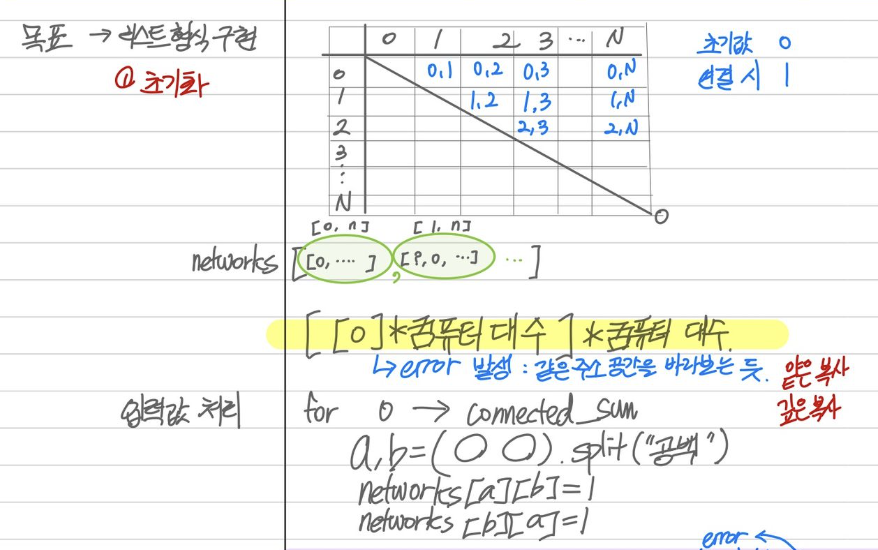 목표 → 리스트 형식 구현
① 초기화
0 1 2 3 ... N
0 0,1 0,2 0,3 0,N
1 1,2 1,3 1,N
2 2,3 2,N
3
⋮
N
0
초기값 0
연결 시 1
[0, n] [1, n]
networks [[0, ···· ], [P, 0, ···] ··· ]
[ [0]*컴퓨터 대수 ] *컴퓨터 대수.
↳ error 발생 : 같은 주소 공간을 바라보는 듯. 얕은 복사
깊은 복사
입력값 처리 for 0 → connected_sum
a,b=(○ ○).split("공백")
networks[a][b]=1
networks[b][a]=1
error ←